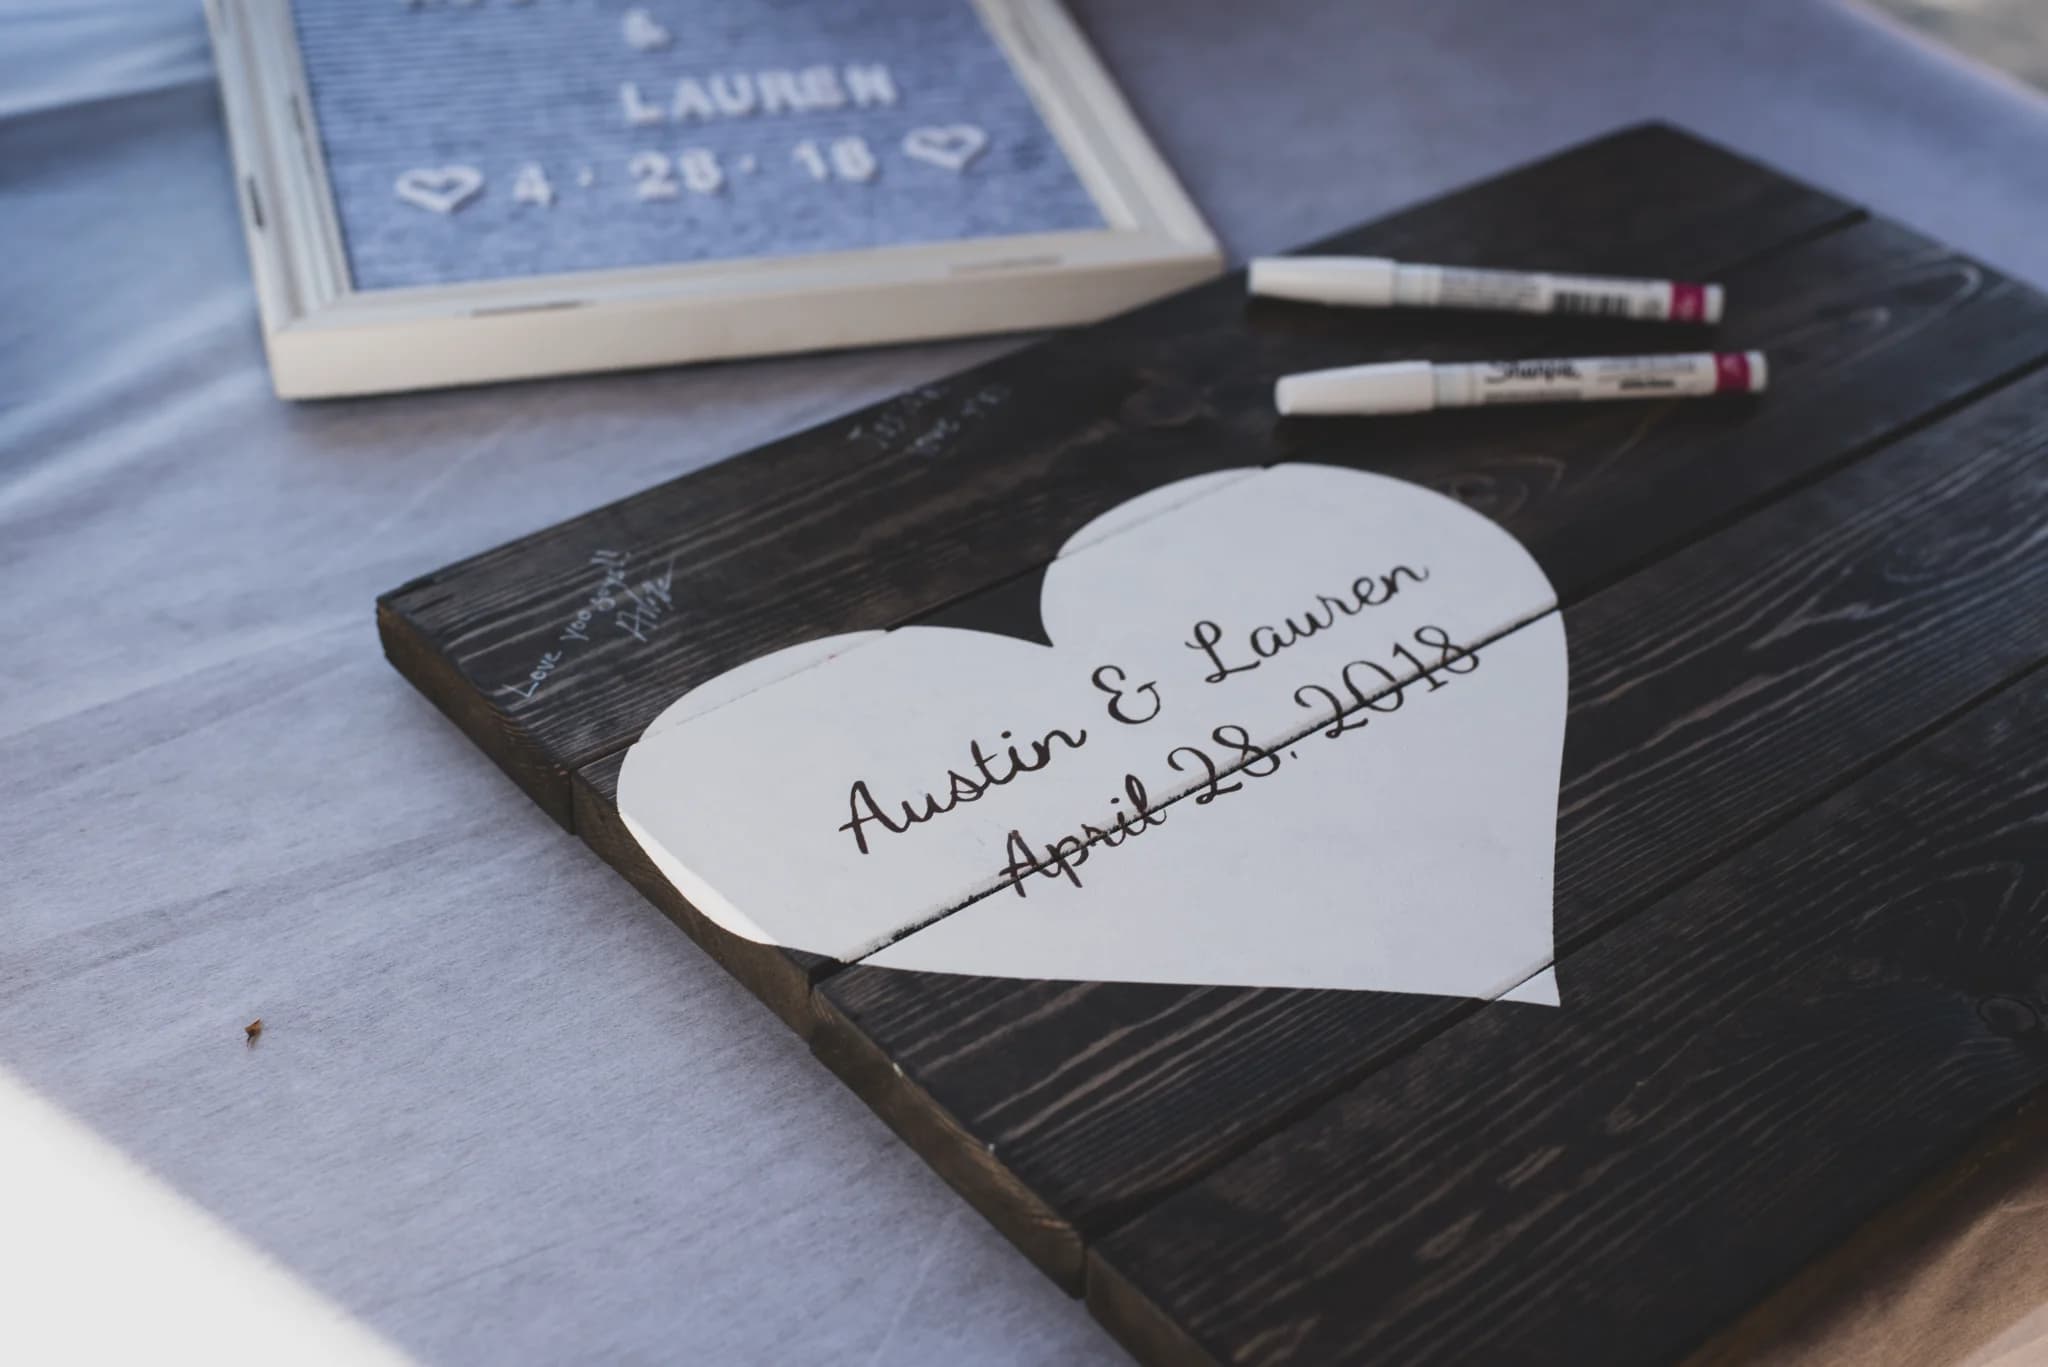 &
LAUREN
4 · 28 · 18
Sharpie
Love you guys!!
Austin & Lauren
April 28, 2018